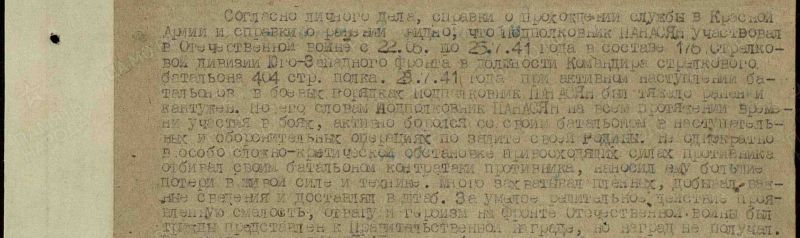 Согласно личного дела, справки о прохождении службы в Красной
Армии и справки о ранении видно, что подполковник ПАНАСЯН участвовал
в Отечественной войне с 22.06. по 23.7.41 года в составе 176 стрелко-
вой дивизии Юго-Западного фронта в должности Командира стрелкового
батальона 404 стр. полка. 23.7.41 года при активном наступлении ба-
тальонов в боевых порядках Подполковник ПАНАСЯН был тяжело ранен и
кантужен. По его словам Подполковник ПАНАСЯН на всем протяжении време-
ни участья в боях, активно боролся со своим батальоном в наступатель-
ных и оборонительных операциях по защите своей Родины. Не однократно
в особо сложно-критической обстановке привосходящих силах противника
отбивал своим батальоном контратаки противника, наносил ему большие
потери в живой силе и технике. Много захватывал пленных, добывал важ-
ные сведения и доставлял в штаб. За умелое решительное действие прояв-
вленную смелость, отвагу и героизм на фронте Отечественной войны был
трижды представлен к Правительственной награде, но наград не получал.